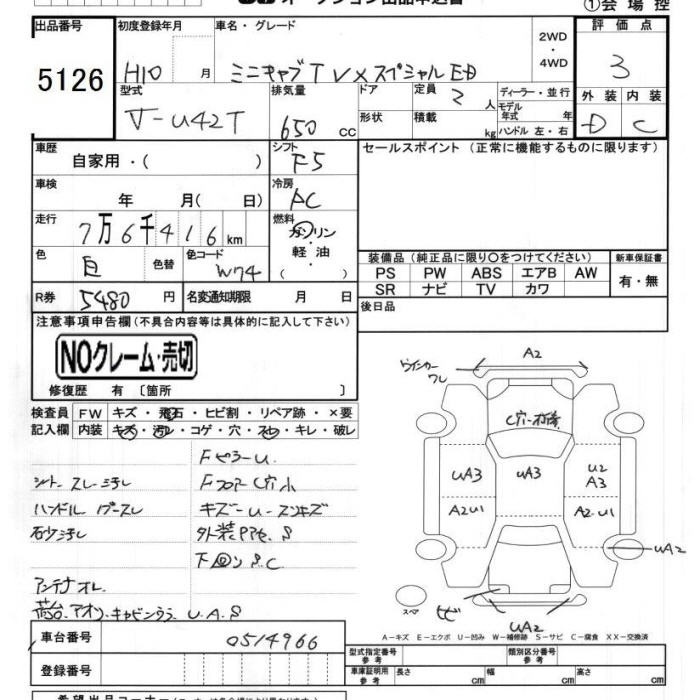 ①会場控
出品番号 初度登録年月 車名・グレード 評価点
5126 H10 月 ミニキャブTV 2WD・4WD 3
型式 排気量 ドア 定員 2 人 ディーラー・並行 外装 内装
V-U42T 650 cc 形状 積載 kg モデル年式 年 ハンドル 左・右 D C
車歴 自家用・( ) シフト F5 セールスポイント(正常に機能するものに限ります)
車検 年 月( 日) 冷房 AC
走行 7万6千416 km 燃料 ガソリン・軽油 ( )
色 白 色替 色コード W74 装備品(純正品に限り○をつけてください) 新車保証書
PS PW ABS エアB AW 有・無
SR ナビ TV カワ
R券 5480 円 名変通知期限 月 日 後日品
注意事項申告欄(不具合内容等は具体的に記入して下さい)
NOクレーム・売切
修復歴 有〔箇所 〕
検査員 FW キズ・飛石・ヒビ割・リペア跡・×要
記入欄 内装 キズ・汚レ・コゲ・穴・スレ・キレ・破レ
FピラーU.
シートスレ汚レ Fフロアー穴小
ハンドル キズ-U-
砂汚レ 外装 S
下回りS.C
アンテナオレ
荷台.アオリ.キャビンウラ U.A.S
ウインカーワレ A2
穴
UA3 UA3 U2 A3
A2U1 A2.U1
UA2
スペア ヒビ UA2
A-キズ E-エクボ U-凹み W-補修跡 S-サビ C-腐食 XX-交換済
車台番号 0514966 型式指定番号 参考 類別区分番号 参考
登録番号 車庫証明用 参考 長さ cm 幅 cm 高さ cm